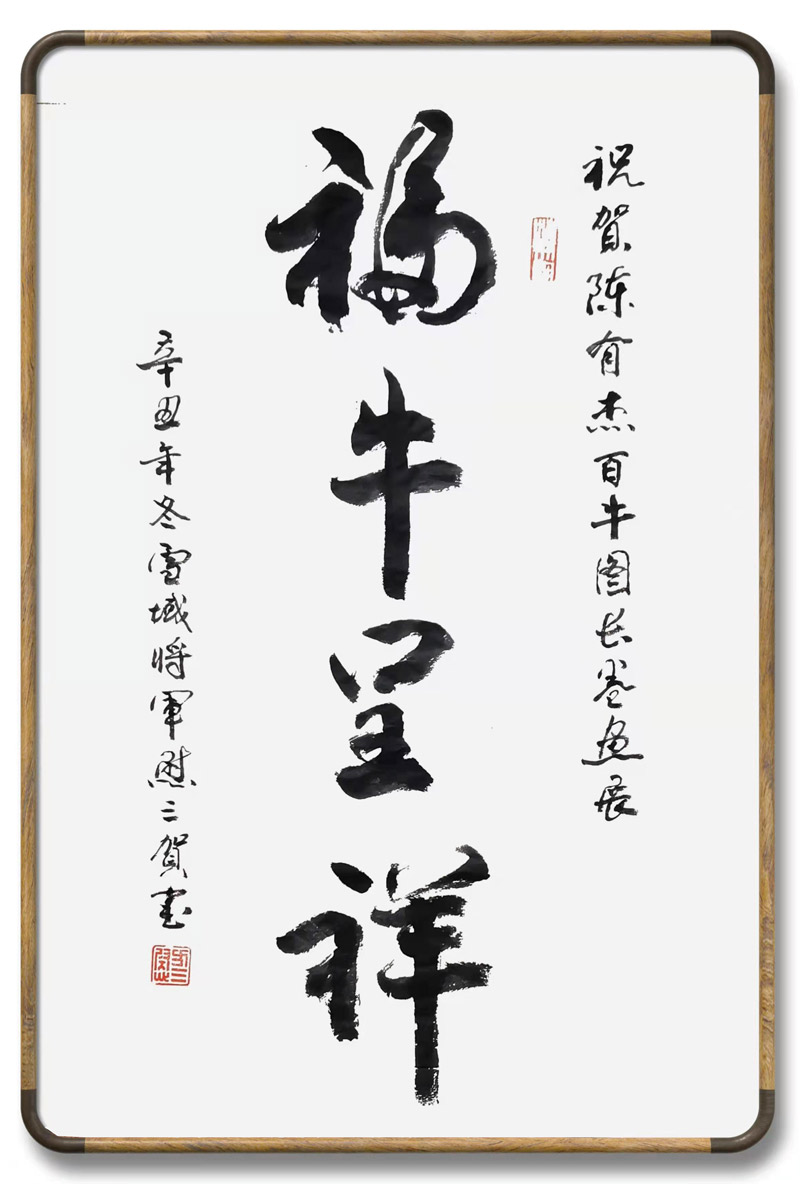 祝贺陈有杰百牛图长卷画展
福牛呈祥
辛丑年冬雪域将军慰三贺书